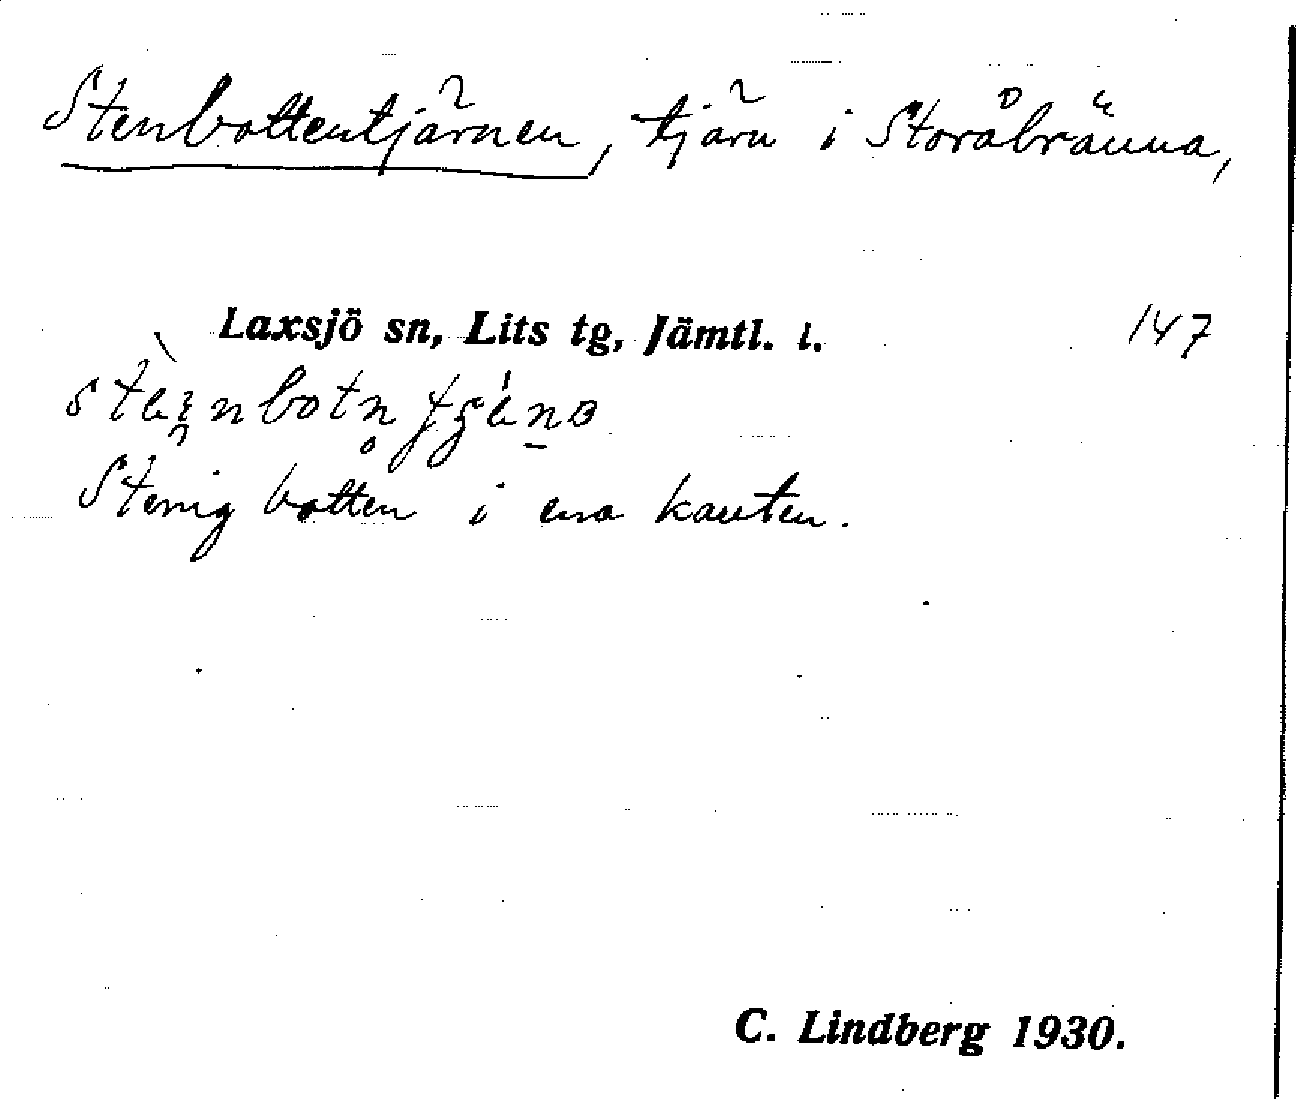 Stenbottentjärnen, tjärn i Storåbränna,
Laxsjö sn, Lits tg, Jämtl. l.
147
Stenig botten i ena kanten.
C. Lindberg 1930.